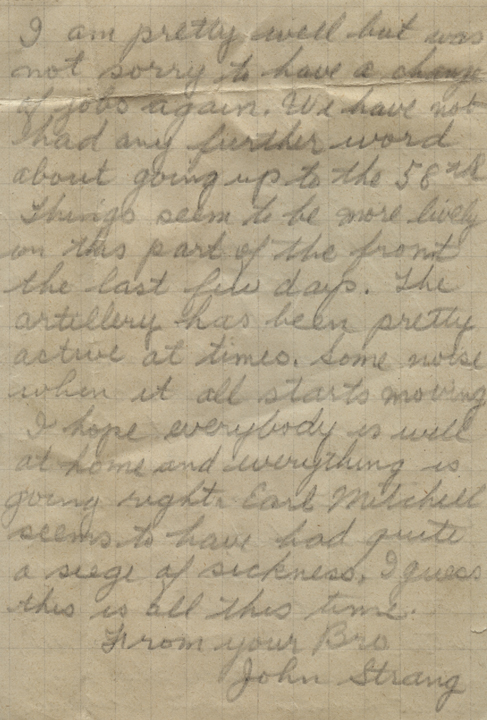 I am pretty well but was
not sorry to have a change
of jobs again. We have not
had any further word
about going up to the 58th
Things seem to be more lively
on this part of the front
the last few days. The
artillery has been pretty
active at times. Some noise
when it all starts moving
I hope everybody is well
at home and everything is
going right. Earl Mitchell
seems to have had quite
a siege of sickness. I guess
this is all this time.
From your Bro
John Strang